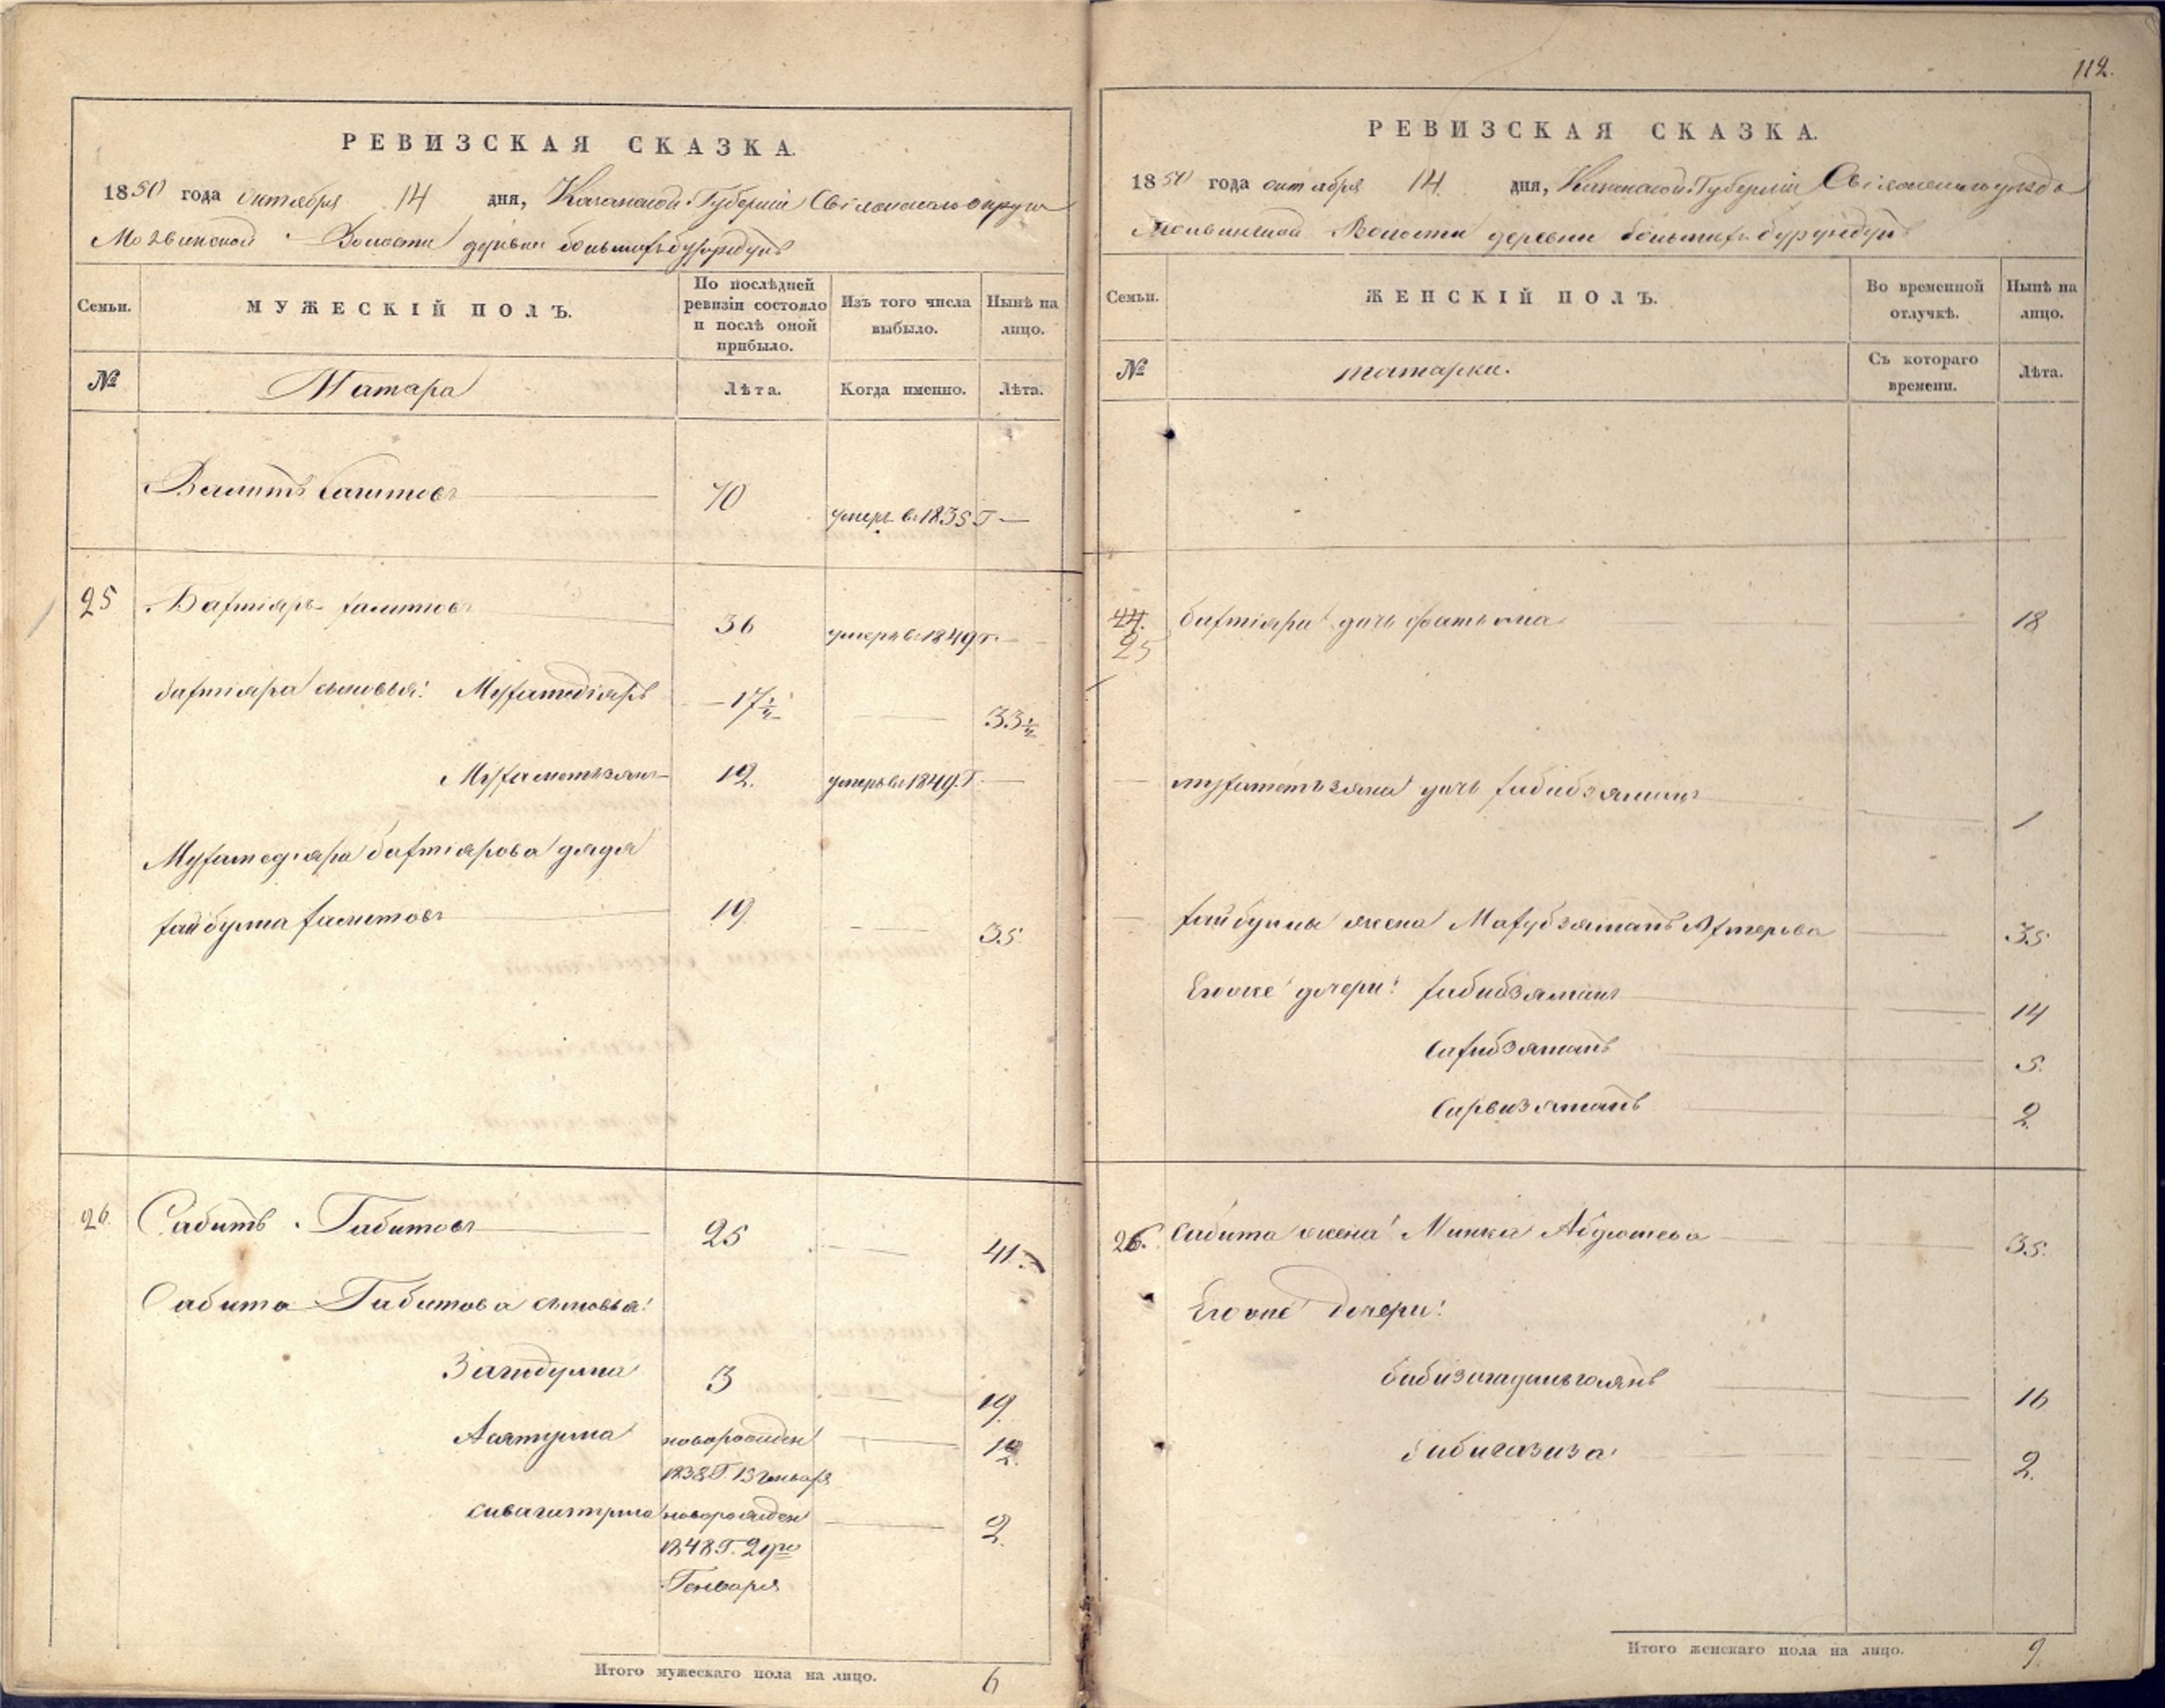 РЕВИЗСКАЯ СКАЗКА.
1850 года октября 14 дня, Казанской Губернiи Свiяжскаго округа
Волости деревни большихъ бурундукъ
Семьи.
МУЖЕСКIЙ ПОЛЪ.
По послѣдней ревизiи состояло и послѣ оной прибыло.
Изъ того числа выбыло.
Нынѣ на лицо.
№
Татара
Лѣта.
Когда именно.
Лѣта.
70 умеръ в 1835 Г
25 Бахтiяръ халитовъ 36 умеръ в 1849 г.
бахтiяра сыновья: Мухамедiяръ 17½ 33½
Мухаметзянъ 12. умеръ в 1849. Г.
Мухамедiяра бахтiярова дядя
хайбулла халитовъ 19 35
26. Сабитъ Габитовъ 25 41.
Сабита Габитова сыновья:
Загидулла 3 19.
новорожден 12.
1838 Г. 13 Генваря
новорожден 2.
1848 Г. 2го
Генваря
Итого мужескаго пола на лицо. 6
112.
РЕВИЗСКАЯ СКАЗКА.
1850 года октября 14 дня, Казанской Губернiи Свiяжскаго уезда
Волости деревни большихъ бурундукъ
Семьи.
ЖЕНСКIЙ ПОЛЪ.
Во временной отлучкѣ.
Нынѣ на лицо.
№
татарки.
Съ котораго времени.
Лѣта.
44. бахтiяра дочь фатьма 18
25
мухаметьзяна дочь хабибзямалъ 1
хайбуллы жена Махубзямалъ 35
Егоже дочери: хабибзямалъ 14
сахибзямалъ 5.
сарвизямалъ 2
26. сабита жена Минка 35.
Егоже дочери:
16
бибигазиза 2.
Итого женскаго пола на лицо. 9